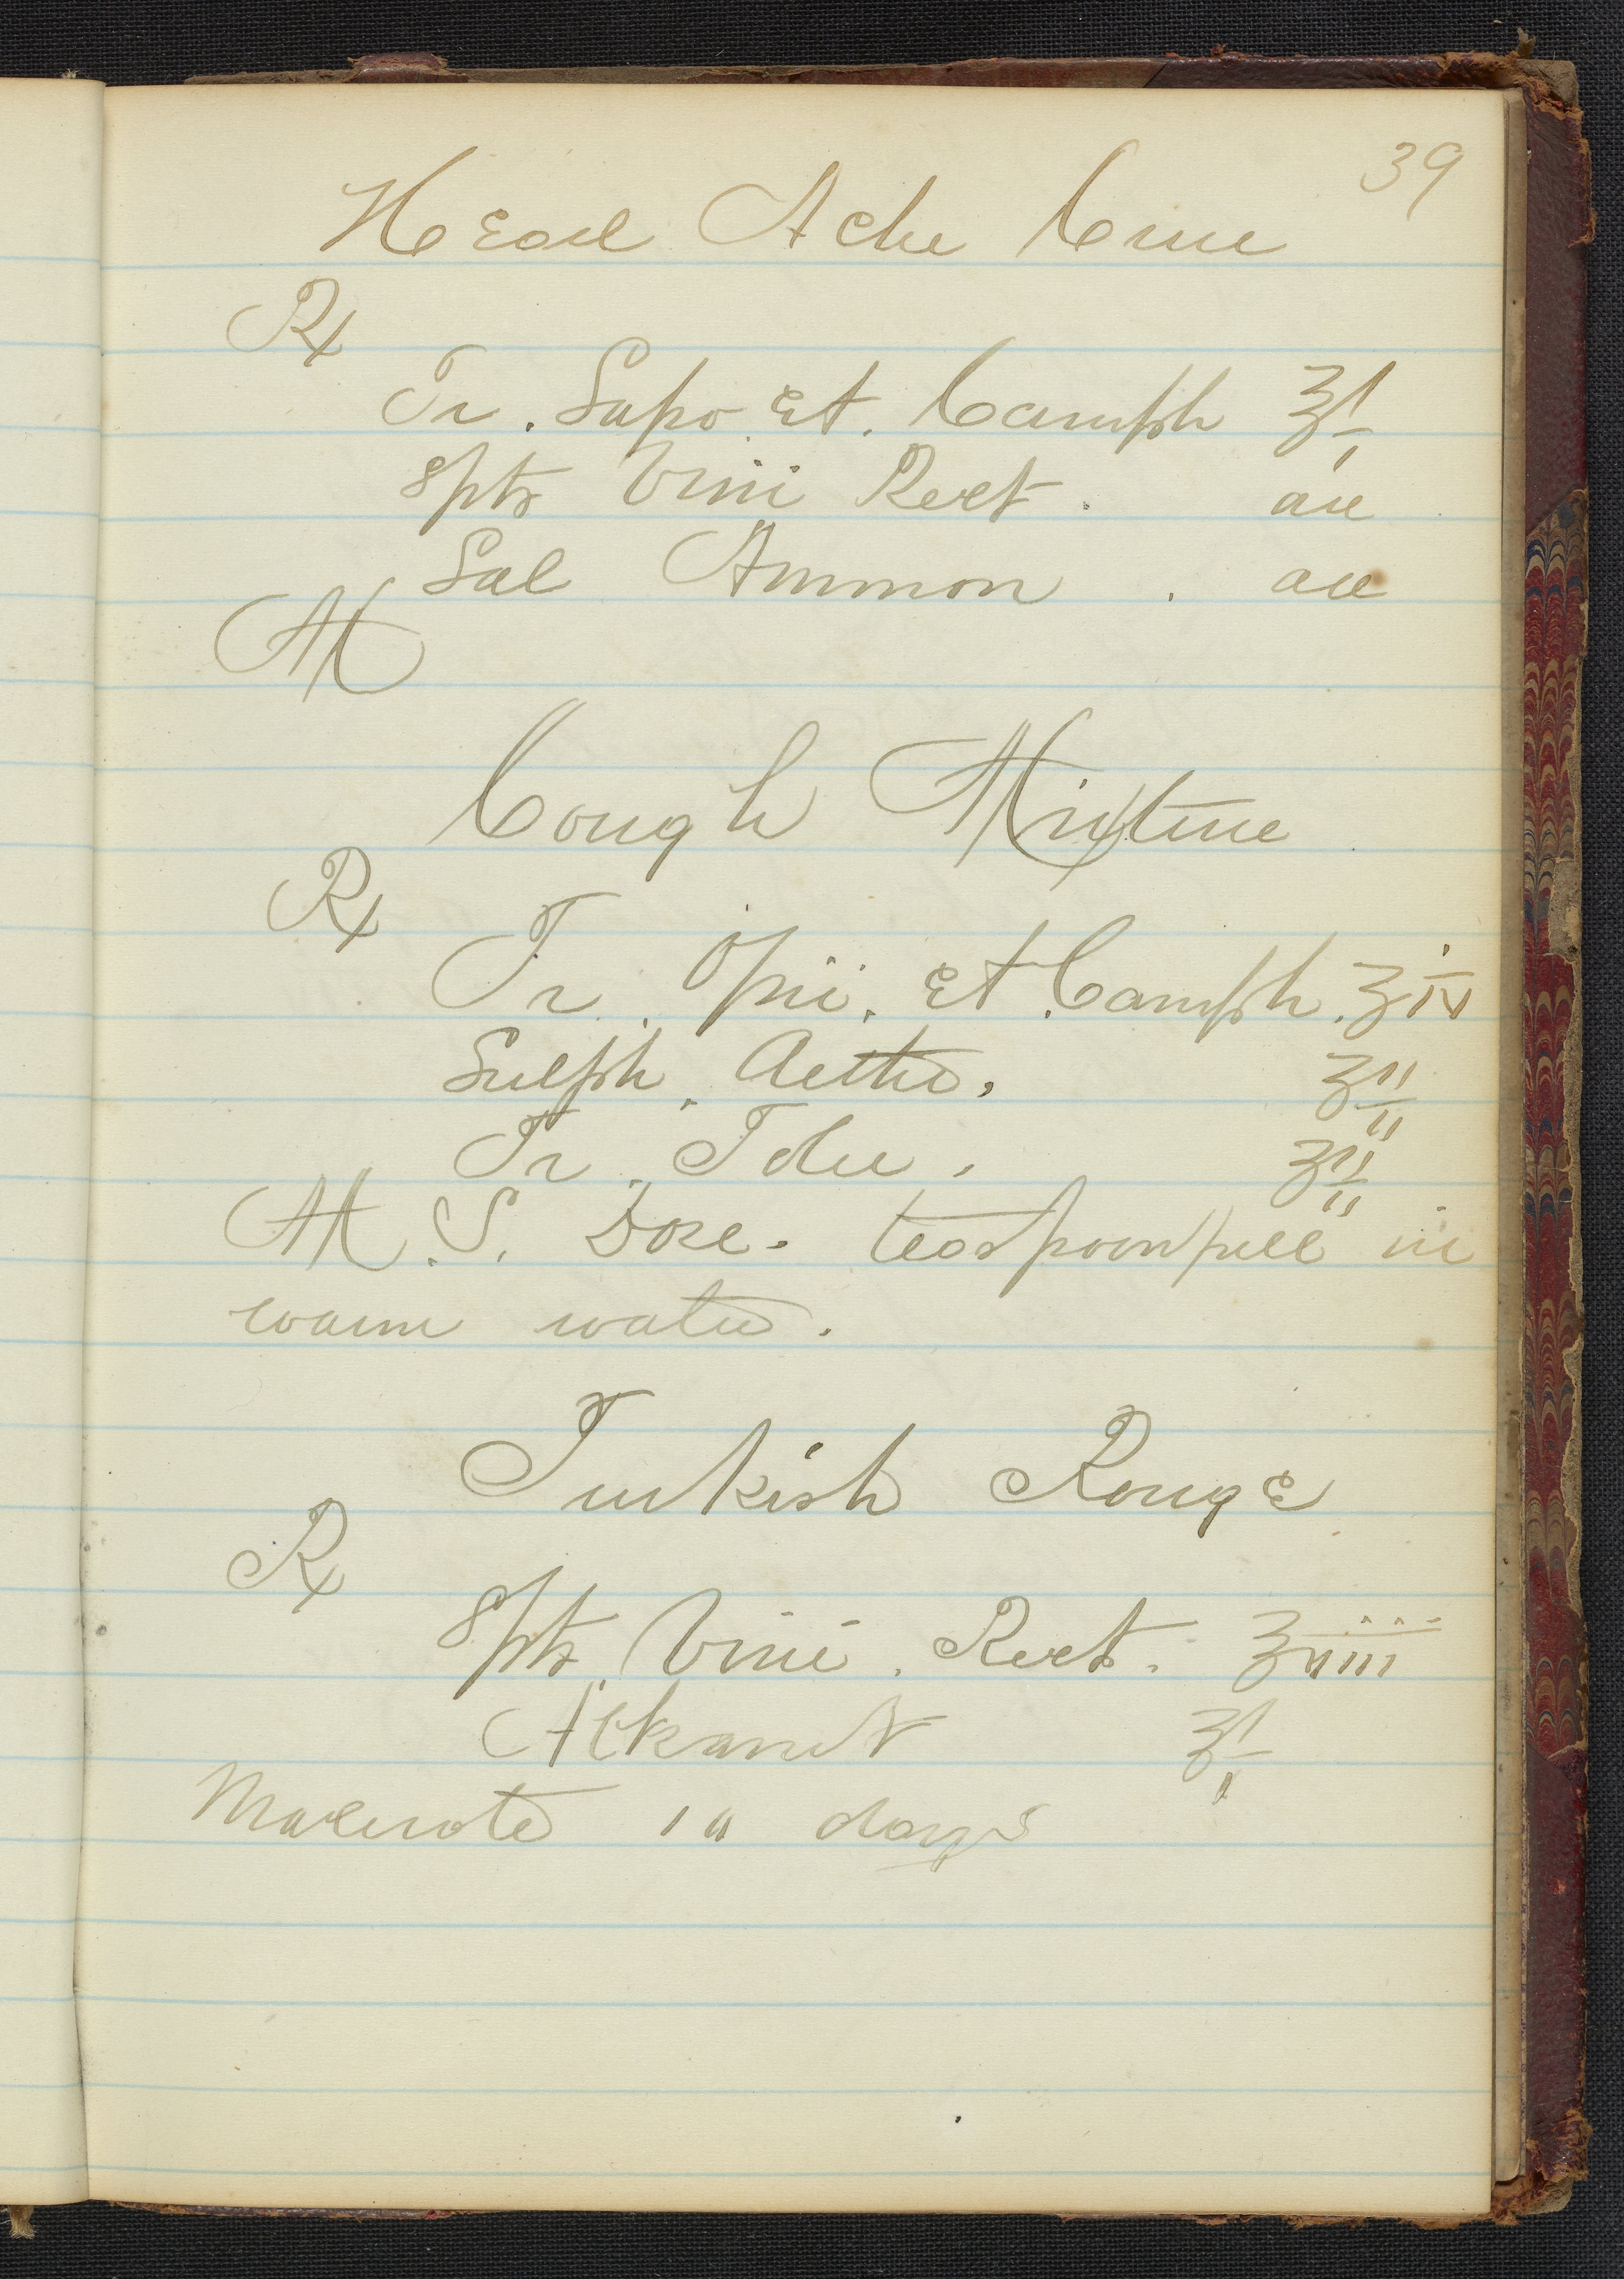 39
Head Ache Cure
℞
Tr. Sapo et. Camph ℥i
Spts Vini Rect. aa
Sal Ammon. aa
M
Cough Mixture
℞
Tr. Opii. et Camph. ℥iv
Sulph. Aether. ʒii
Tr. Tolu. ʒii
M. S. Dose. teaspoonfull in
warm water.
Turkish Rouge
℞
Spts Vini. Rect. ℥viii
Alkanet ℥i
Macerate 10 days